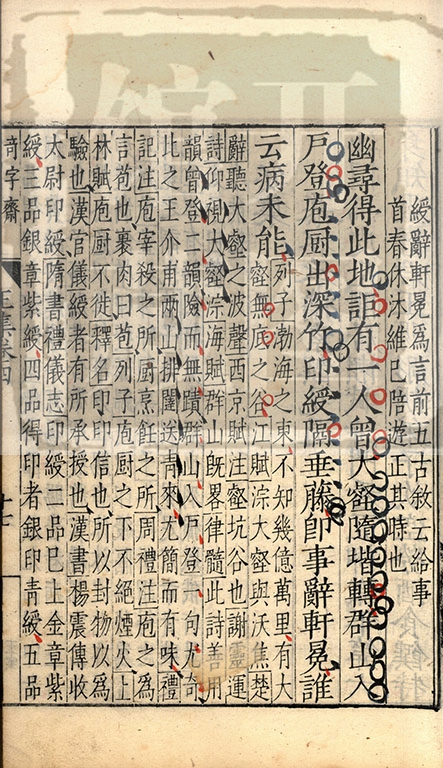 綬辭軒冕爲言前五古敘云給事
首春休沐維已陪遊正其時也
幽尋得此地詎有一人曾大壑隨堦轉群山入
戶登庖厨出深竹印綬隔垂藤即事辭軒冕誰
云病未能
列子渤海之東不知幾億萬里有大
壑無底之谷江賦淙大壑與沃焦楚
辭聽大壑之波聲西京賦注壑坑谷也謝靈運
詩仰視大壑淙海賦群山旣畧律髓此詩善用
韻曾登二韻險而無蹟群山入戶登一句尤奇
比之王介甫兩山排闥送青來尤簡而有味禮
記注庖宰殺之所厨烹飪之所周禮注庖之爲
言苞也裹肉曰苞列子庖厨之下不絕煙火上
林賦庖厨不徙釋名印信也所以封物以爲
驗也漢官儀綬者有所承授也漢書楊震傳收
太尉印綬隋書禮儀志印綬二品已上金章紫
綬三品銀章紫綬四品得印者銀印青綬五品
奇字齋
正集卷四
十七